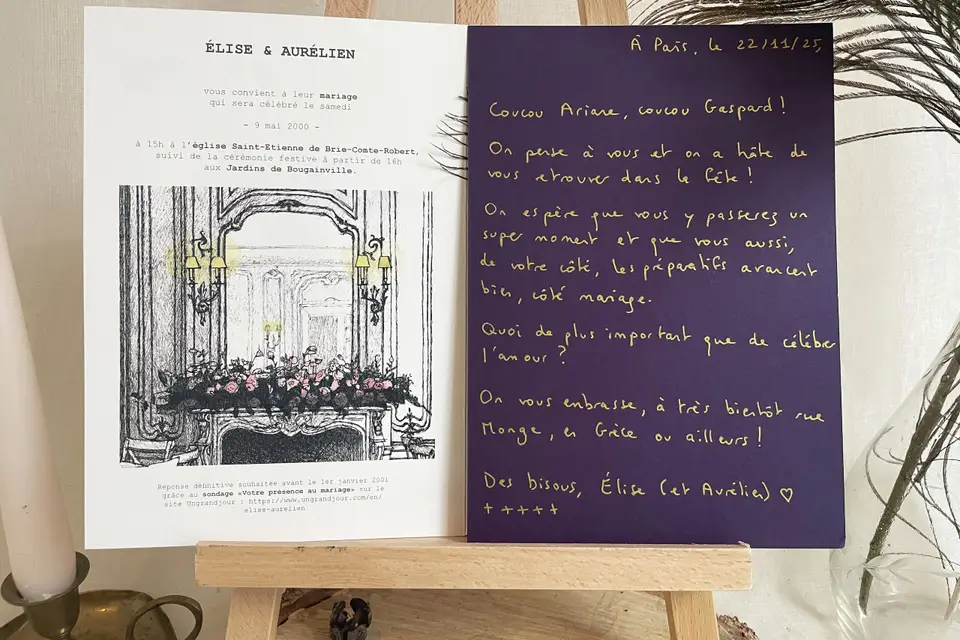 ÉLISE & AURÉLIEN
vous convient à leur mariage
qui sera célébré le samedi
- 9 mai 2000 -
à 15h à l'église Saint-Etienne de Brie-Comte-Robert,
suivi de la cérémonie festive à partir de 16h
aux Jardins de Bougainville.
Réponse définitive souhaitée avant le 1er janvier 2001
grâce au sondage «Votre présence au mariage» sur le
site Ungrandjour : https://www.ungrandjour.com/en/
elise-aurelien
À Paris, le 22/11/25,
Coucou Ariane, coucou Gaspard !
On pense à vous et on a hâte de
vous retrouver dans la fête !
On espère que vous y passerez un
super moment et que vous aussi,
de votre côté, les préparatifs avancent
bien, côté mariage.
Quoi de plus important que de célébrer
l'amour ?
On vous embrasse, à très bientôt rue
Monge, en Grèce ou ailleurs !
Des bisous, Élise (et Aurélien) ♡
+ + + + +